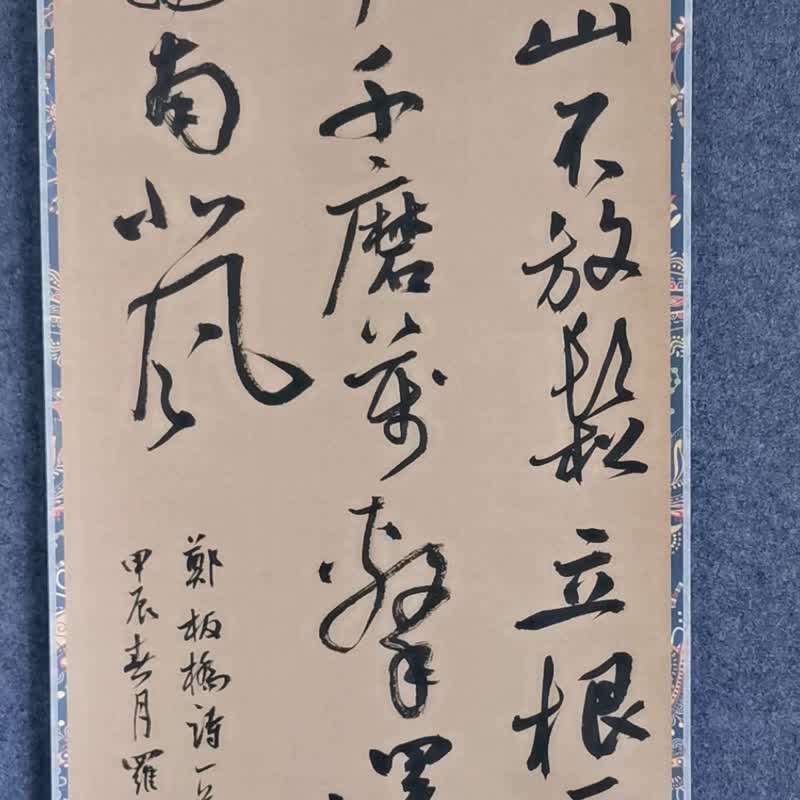 山不放鬆立根
千磨萬擊還
南北風
鄭板橋詩一
甲辰春月羅